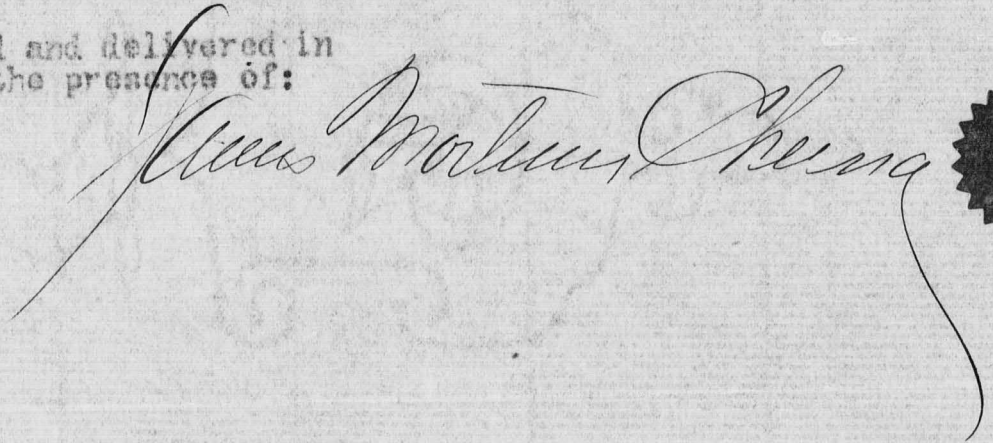 l and delivered in
the presence of:
James Mortimer